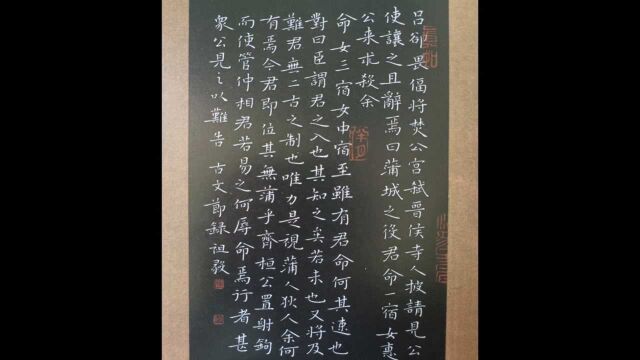 呂郤畏偪將焚公宮弒晉侯寺人披請見公
使讓之且辭焉曰蒲城之役君命一宿女惠
公来求殺余
命女三宿女中宿至雖有君命何其速也
對曰臣謂君之入也其知之矣若未也又將及
難君無二古之制也唯力是視蒲人狄人余何
有焉今君即位其無蒲乎齊桓公置射鉤
而使管仲相君若易之何辱命焉行者甚
衆公見之以難告 古文節録祖發